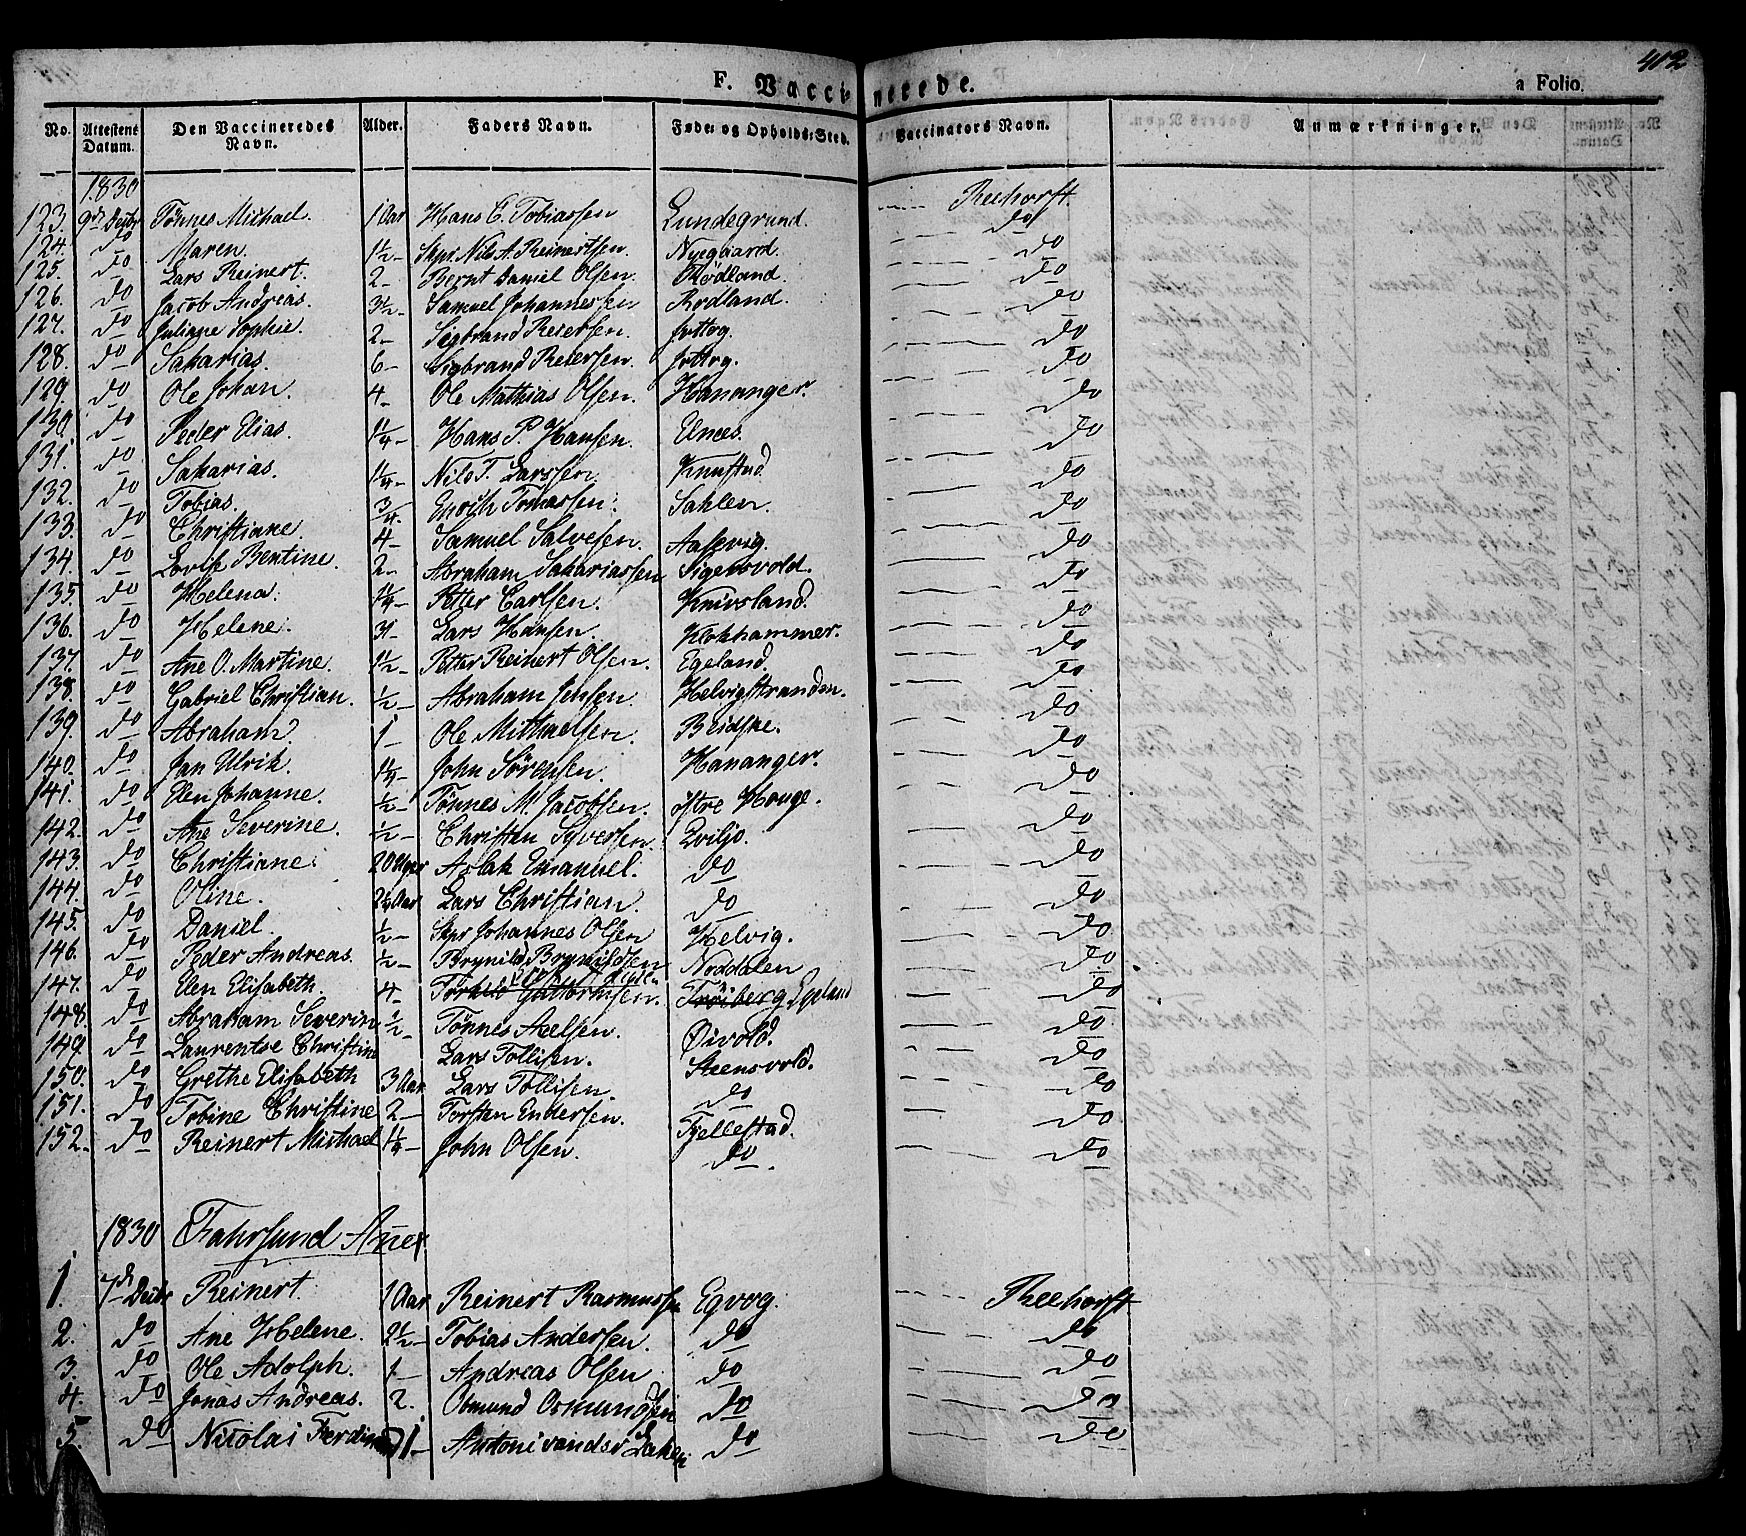 412
F. Vaccinerede. a Folio.
No. Attestens Datum. Den Vaccineredes Navn. Alder. Faders Navn. Føde- og Opholds-Sted. Vaccinators Navn. Anmærkninger.
1830
123. 9de Decbr Tønnes Michael. 1 Aar Hans C. Tobiassen Lundegrund. Reehorst.
124. do Maren. 1½ - Skpr. Nils A. Reinertsen. Nyegaard. do
125. do Lars Reinert. 2 - Bernt Daniel Olsen. Rødland. do
126. do Jacob Andreas. 3½ - Samuel Johannessen Rodland. do
127. do Juliane Sophie. 2 - Sigbrand Reiersen. Jottog. do
128. do Sakarias. 6 - Sigbrand Reiersen. Jottog. do
129. do Ole Johan. 4 - Ole Mathias Olsen. Hananger. do
130. do Peder Elias. 1¼ - Hans P. Hansen. Elnes. do
131. do Sakarias. 1¼ - Nils T. Larssen. Knustad do
132. do Tobias. ¾ - Tomassen. Sahlen. do
133. do Christiane. 4 - Samuel Salvesen. Aasevig. do
134. do Lovise Bentine. 2 - Abraham Sakariassen Sigersvold. do
135. do Helena. 1¼ - Petter Carlsen. Knivsland. do
136. do Helene. 3 - Lars Hansen. Klokhammer. do
137. do Ane O. Martine. 1½ - Petter Reinert Olsen. Egeland. do
138. do Gabriel Christian. ½ - Abraham Jensen. Helvigstranden. do
139. do Abraham 1 - Ole Michaelsen. Briske. do
140. do Jan Ulrik. 1¼ - John Sörensen. Hananger. do
141. do Elen Johanne. ½ - Tønnes M. Jacobsen. östre Houge. do
142. do Ane Severine. ½ - Christen Syversen. Qviljo. do
143. do Christiane. 20 Uger Aslak Emanuel. do do
144. do Oline. 2½ Aar Lars Christian. do do
145. do Daniel. ½ - Skpr Johannes Olsen Helvig. do
146. do Peder Andreas. ½ - Brynild Brynildsen Noddalen do
147. do Elen Elisabeth. 4 - Torkild Guttormsen. Trøiberg Egeland do
148. do Abraham Severin ½ - Tönnes Axelsen. Øivold. do
149. do Laurentse Christine Lars Tollisen. Steensvold. do
150. do Grethe Elisabeth 3 Aar Lars Tollisen. do do
151. do Tobine Christine 2 - Torsten Endersen. Fjellestad. do
152. do Reinert Michael 1¼ - John Olsen. do. do
1830 Fahrsund Annex.
1. 7de Decbr Reinert. 1 Aar Reinert Rasmussen Egvog. Reehorst.
2. do Ane Helene. 2½ - Tobias Andersen. do do
3. do Ole Adolph. 1 - Andreas Olsen do do
4. do Jonas Andreas. 2. Osmund Osmundsen do do
5. do Nicolai Ferdinand 1 - Antoni vander Laken do do